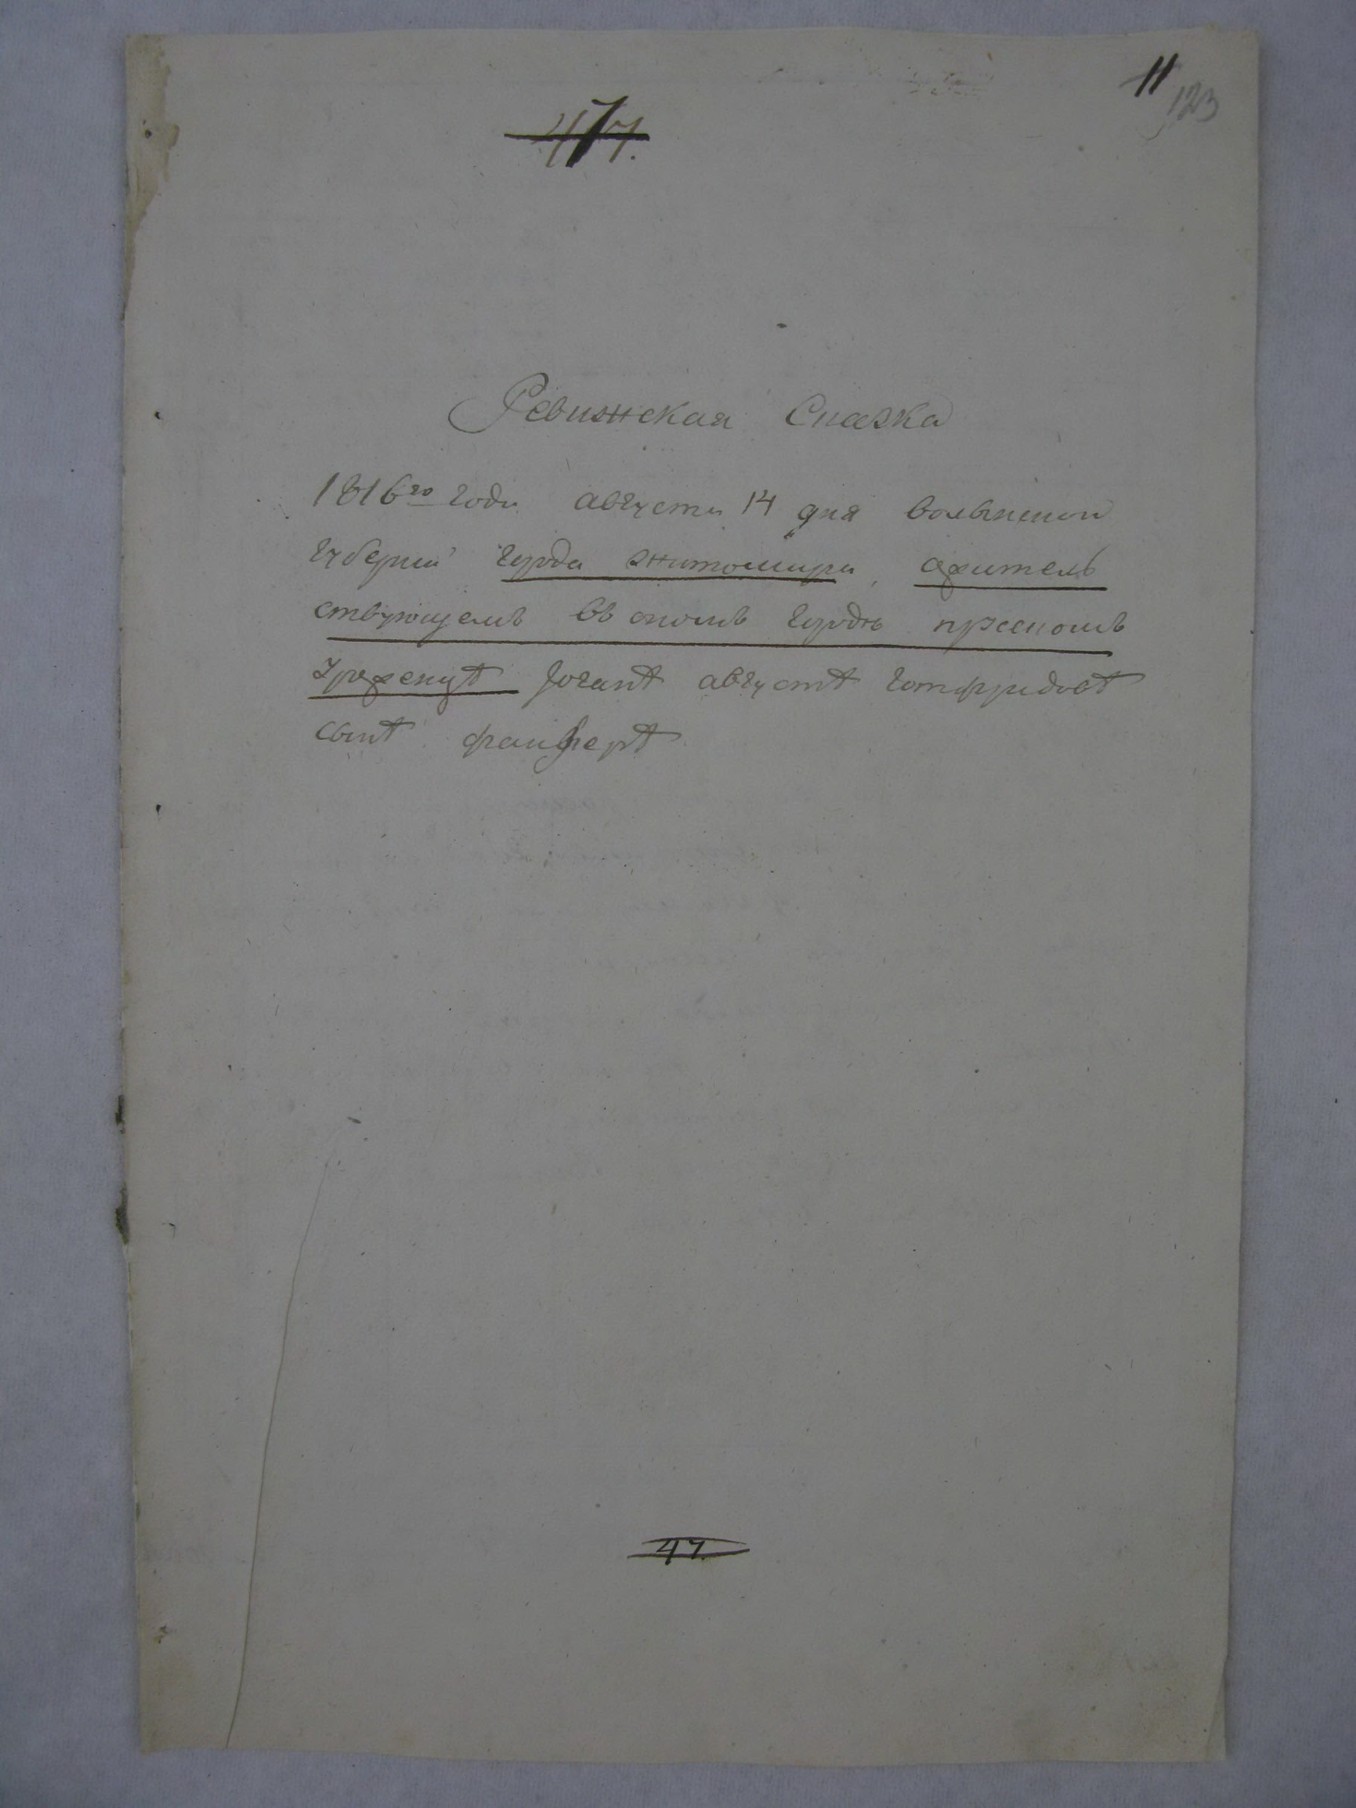 11
123
47.
Ревижская Сказка
1816го года августа 14 дня волынской
Губернии города житомира, ожитель
ствующемъ въ ономъ городѣ прускомъ
Іоганъ августъ готфридовъ
сынъ фанферъ
47.